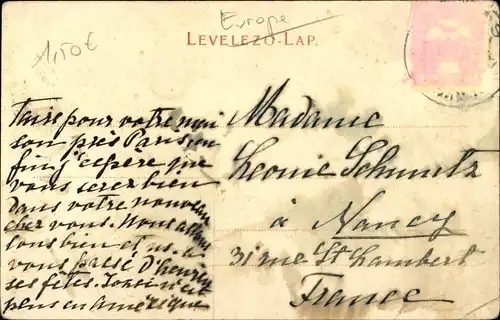 Europe
1,50€
LEVELEZŐ-LAP.
faire pour votre mai
son près Paris, en
fin j'espère que
vous serez bien
dans votre nouveau
chez vous. Nous allons
tous bien et
vous
ses fêtes.
pens en Amérique
Madame
Leonie Schmitz
à Nancy
31 rue St Lambert
France